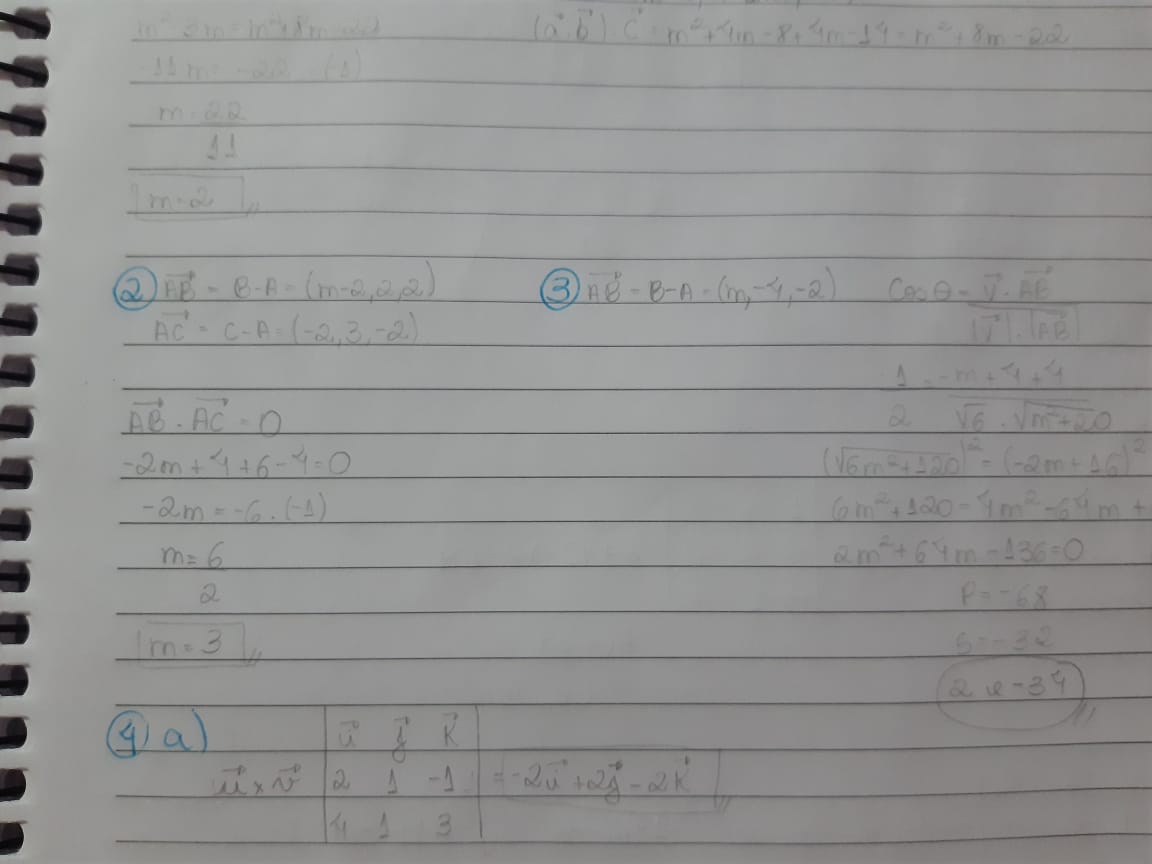 m² 3m = m² + 8m - 22
(a⃗·b⃗) c⃗ = m² + 4m - 8 + 4m - 14 = m² + 8m - 22
-11m = -22 (-1)
m = 22
11
m = 2
2 AB⃗ = B-A = (m-2, 2, 2)
AC⃗ = C-A = (-2, 3, -2)
AB⃗ · AC⃗ = 0
-2m + 4 + 6 - 4 = 0
-2m = -6 . (-1)
m = 6
2
m = 3
3 AB⃗ = B-A = (m, -4, -2)
Cos θ = v⃗ · AB⃗
|v⃗| · |AB⃗|
1 = -m + 4 + 4
2 √6 . √m² + 20
(√6m² + 120)² = (-2m + 16)²
6m² + 120 = 4m² - 64m +
2m² + 64m - 136 = 0
P = -68
S = -32
2 e -34
4) a)
i⃗ j⃗ k⃗
u⃗ × v⃗ 2 1 -1 = -2i⃗ + 2j⃗ - 2k⃗
4 1 3